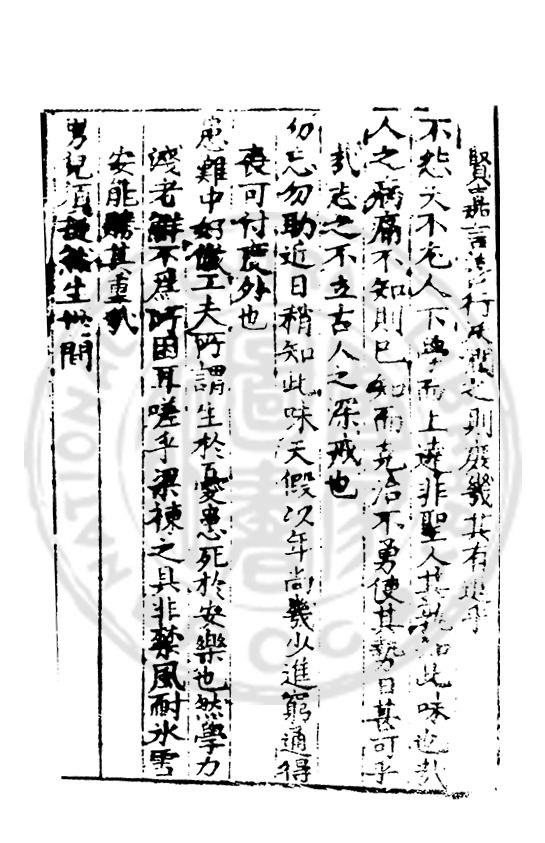 賢嘉言善行反觀之則庶幾其有進乎
不怨天不尤人下學而上達非聖人其孰知此味也哉
人之病痛不知則已知而克治不勇使其勢日甚可乎
哉志之不立古人之深戒也
勿忘勿助近日稍知此味天假以年尚幾少進窮通得
喪可付度外也
患難中好做工夫所謂生於憂患死於安樂也然學力
淺者鮮不爲所困耳嗟乎梁棟之具非禁風耐氷雪
安能勝其重哉
男兒須挺然生世間